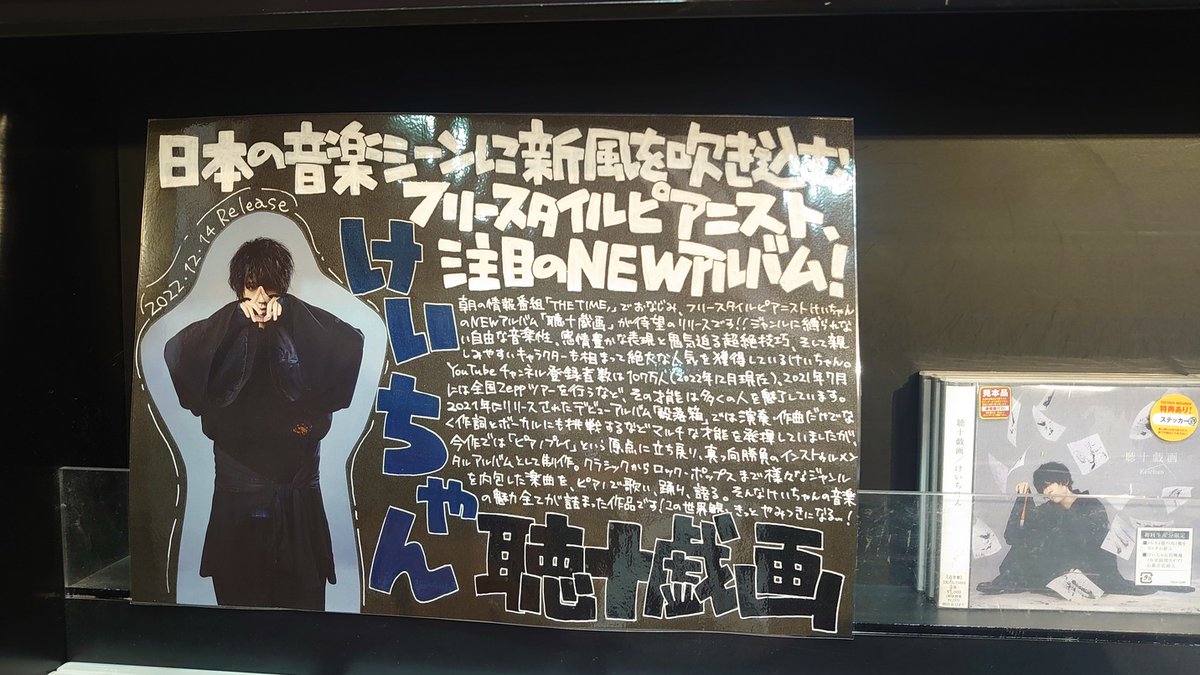 日本の音楽シーンに新風を吹き込む
フリースタイルピアニスト、
注目のNEWアルバム!
2022.12.14 Release
けいちゃん
朝の情報番組「THE TIME,」でおなじみ、フリースタイルピアニストけいちゃん
のNEWアルバム「聴十戯画」が待望のリリースです!!ジャンルに縛られない
自由な音楽性、感情豊かな表現と鬼気迫る超絶技巧、そして親
しみやすいキャラクターも相まって絶大な人気を獲得しているけいちゃん。
YouTubeチャンネル登録者数は107万人(2022年12月現在)、2021年7月
には全国Zeppツアーを行うなど、その才能は多くの人を魅了しています。
2021年にリリースされたデビューアルバム「殻落箱」では演奏・作曲だけでな
く作詞とボーカルにも挑戦するなどマルチな才能を発揮していましたが、
今作では「ピアノプレイ」という原点に立ち戻り、真っ向勝負のインストゥルメン
タルアルバムとして制作。クラシックからロック・ポップスまで様々なジャンル
を内包した楽曲を、ピアノで歌い、踊り、語る。そんなけいちゃんの音楽
の魅力全てが詰まった作品です!この世界観、きっとやみつきになる…!
聴十戯画
聴十戯画/けいちゃん
見本品
特典あり!
ステッカー
聴十戯画
Keichan
初回生産分限定